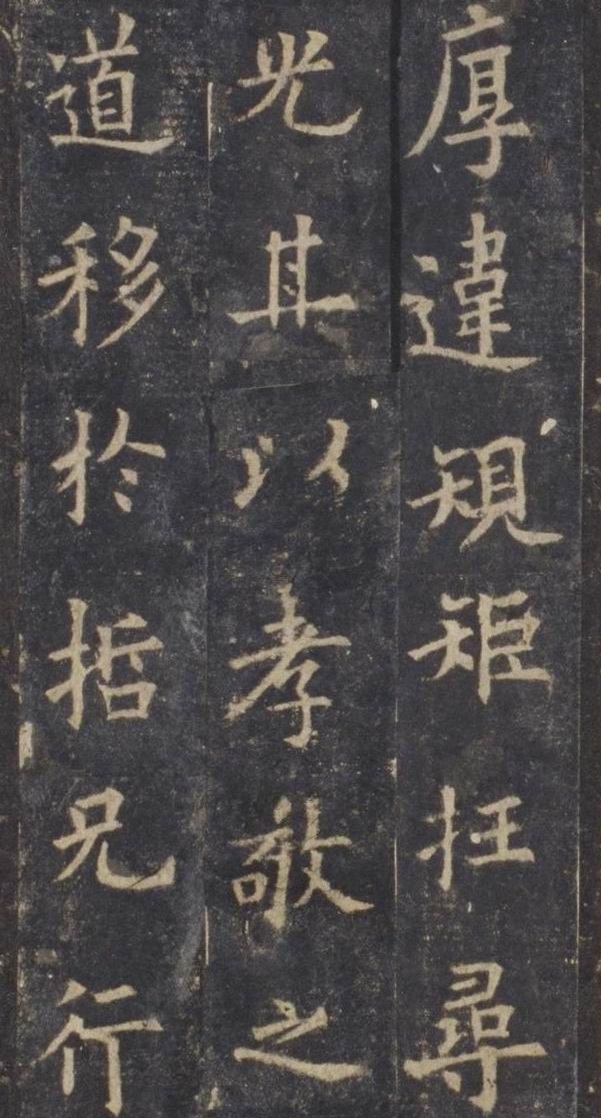 厚違規矩枉尋
光其以孝敬之
道移於哲兄行